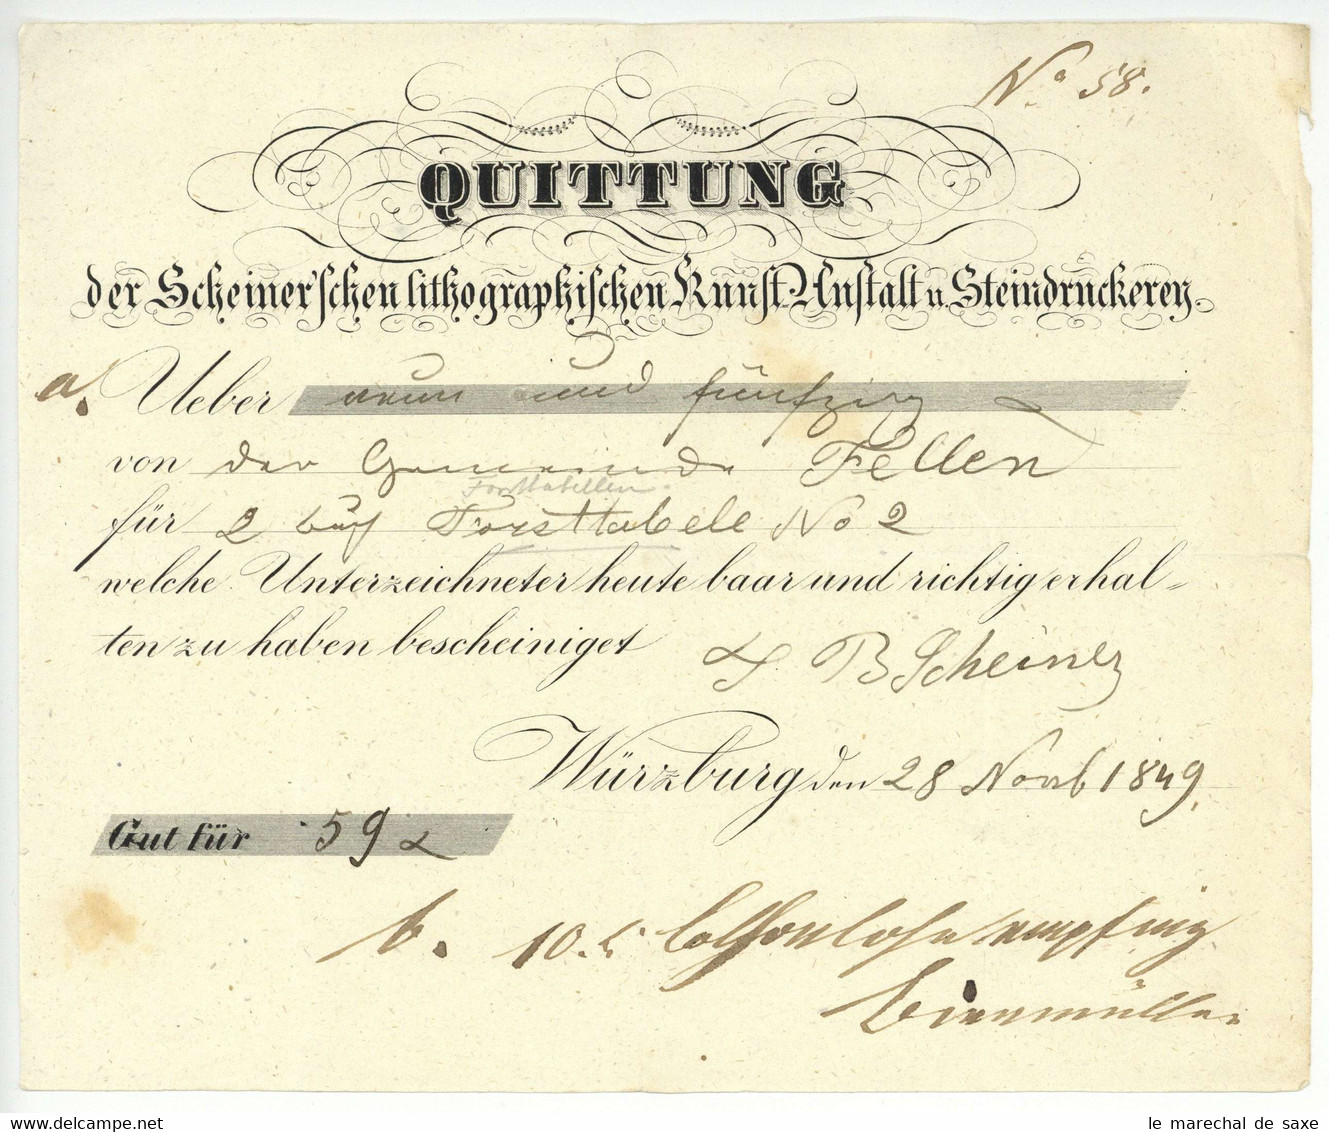 No 58.
QUITTUNG
der Scheiner'schen lithographischen Kunst-Anstalt u. Steindruckerey.
a. Ueber neun und fünfzig x
von der Gemeinde Fellen
Forsttabellen
für 2 buch Forsttabelle No 2
welche Unterzeichneter heute baar und richtig erhal-
ten zu haben bescheiniget
B Scheiner
Würzburg den 28 Novb 1849.
Gut für 59 x
b. 10. x Bothenlohn empfing
delcampe.net
le marechal de saxe